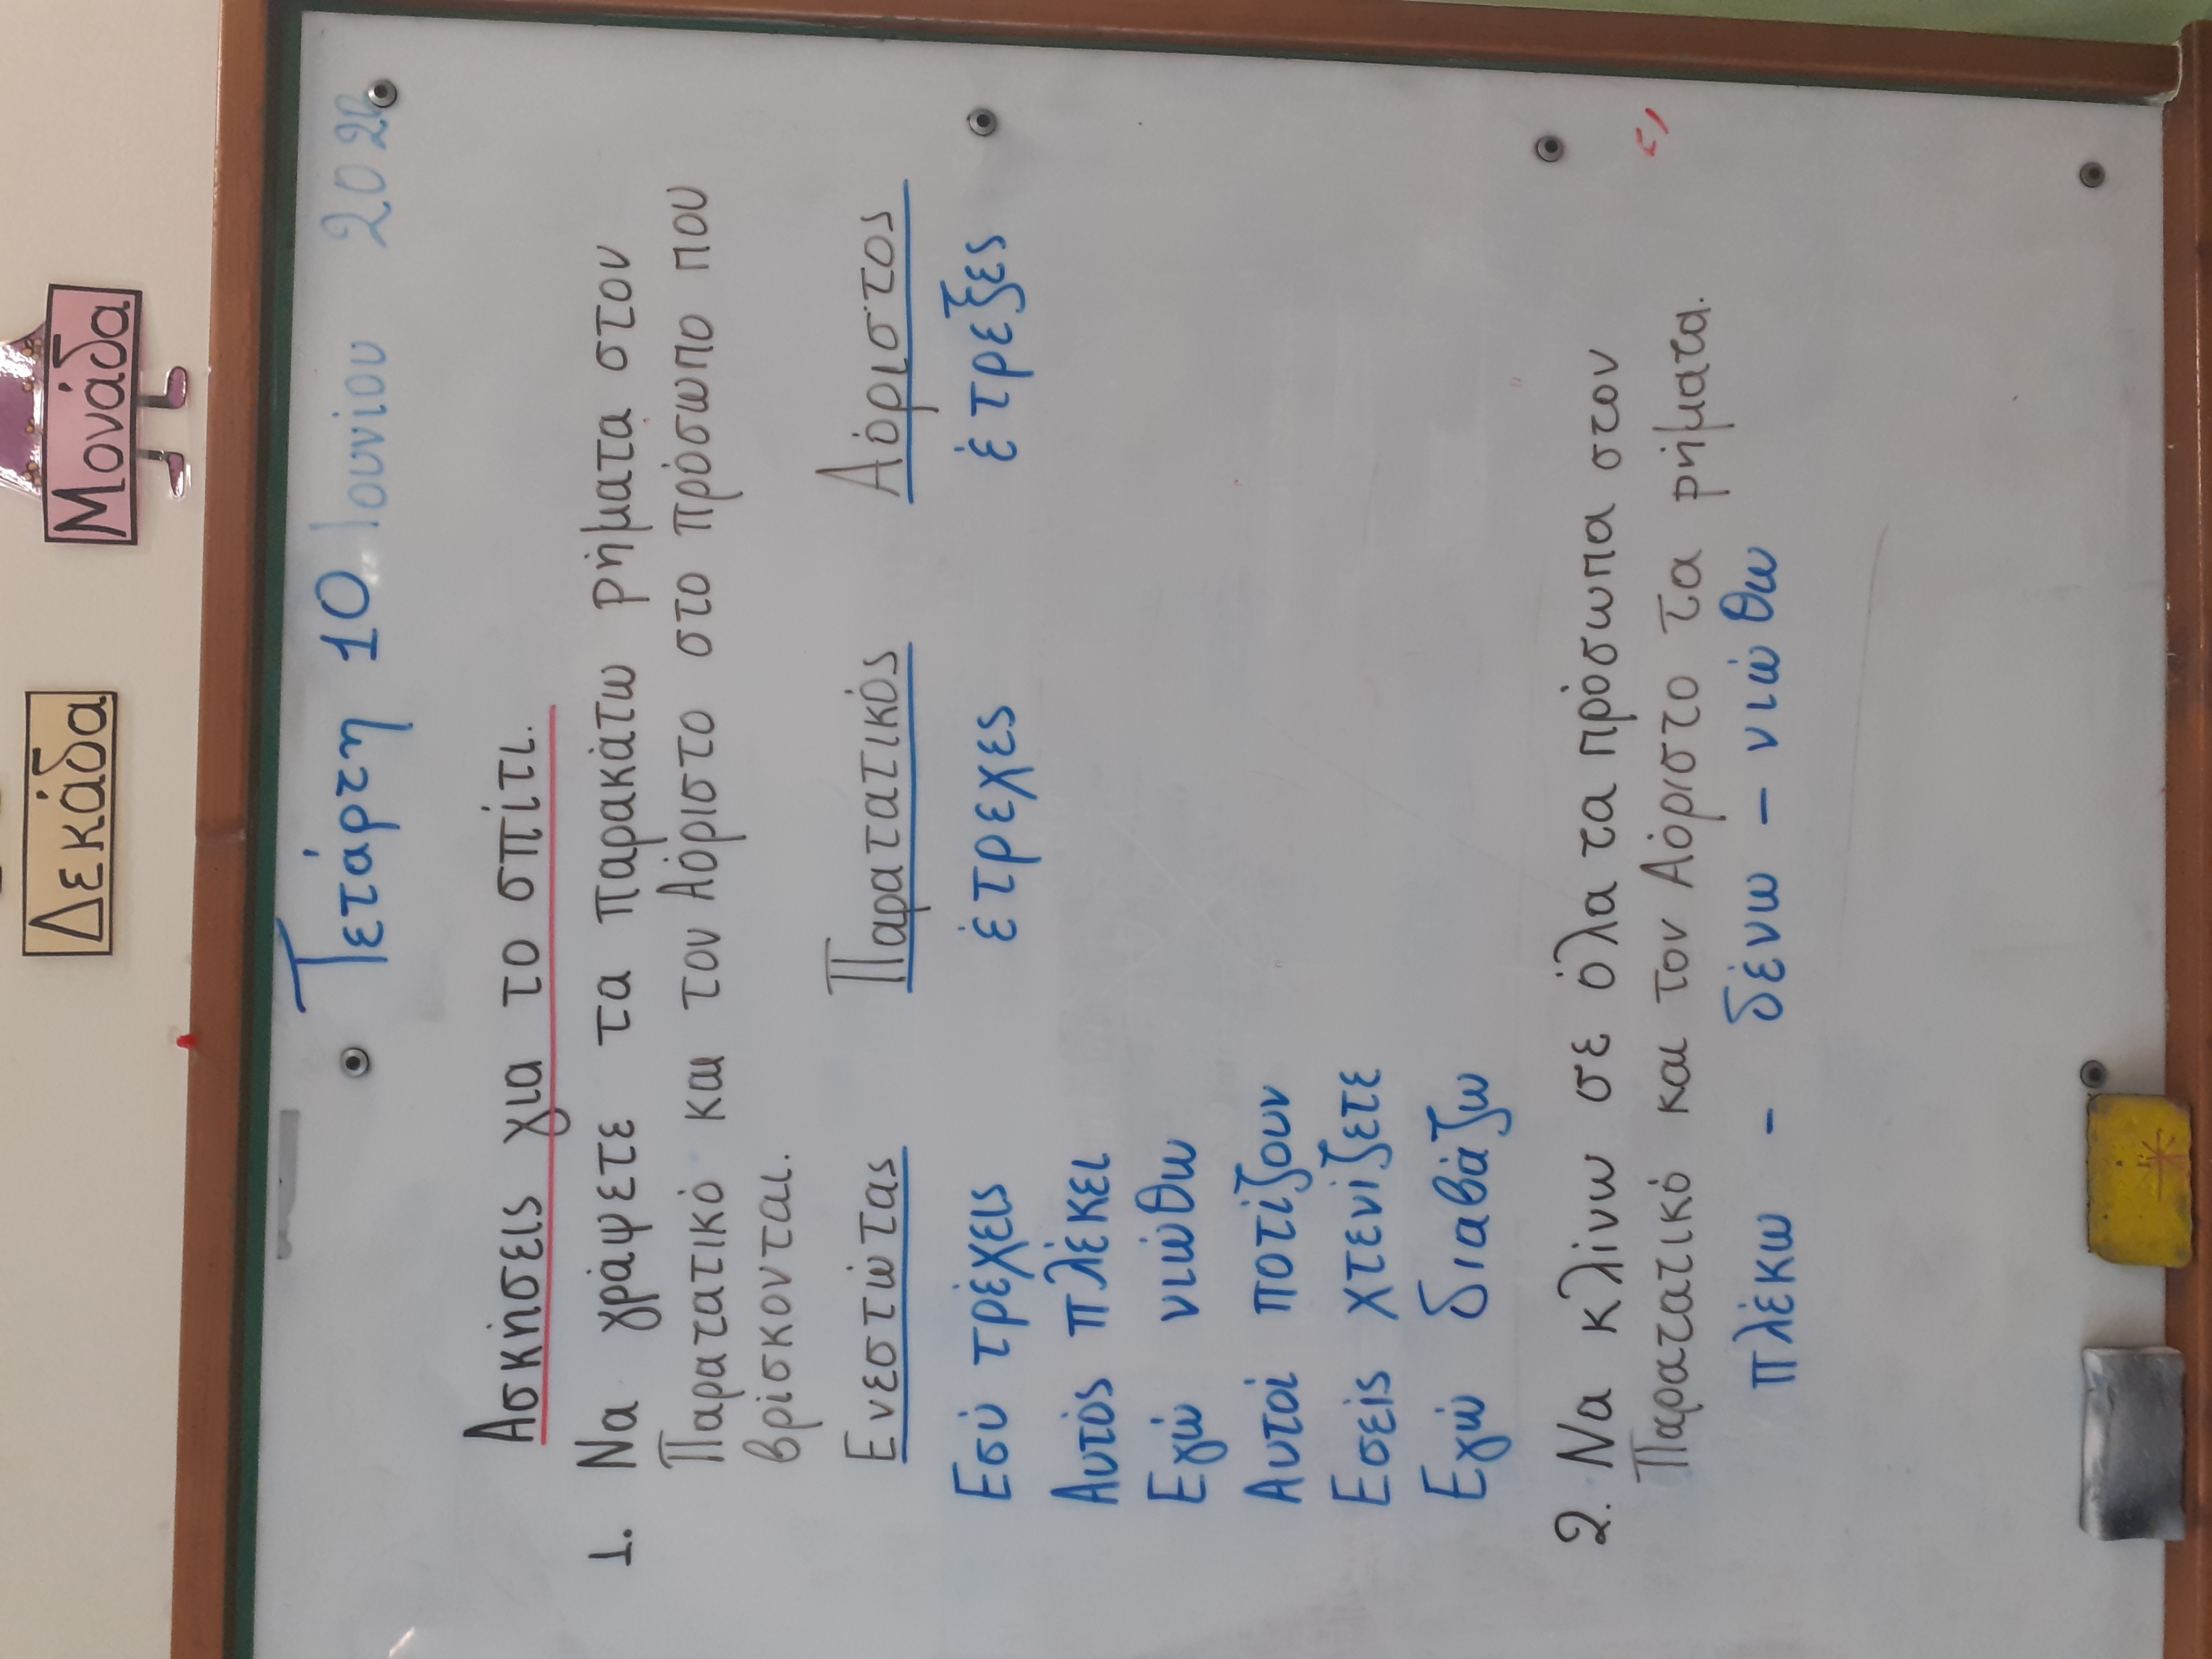 Δεκάδα Μονάδα
Τετάρτη 10 Ιουνίου
Ασκήσεις για το σπίτι.
1. Να γράψετε τα παρακάτω ρήματα στον
Παρατατικό και τον Αόριστο στο πρόσωπο που
βρίσκονται.
Ενεστώτας Παρατατικός Αόριστος
Εσύ τρέχεις έτρεχες έτρεξες
Αυτός πλέκει
Εγώ νιώθω
Αυτοί ποτίζουν
Εσείς χτενίζετε
Εγώ διαβάζω
2. Να κλίνω σε όλα τα πρόσωπα στον
Παρατατικό και τον Αόριστο τα ρήματα.
πλέκω - δένω - νιώθω